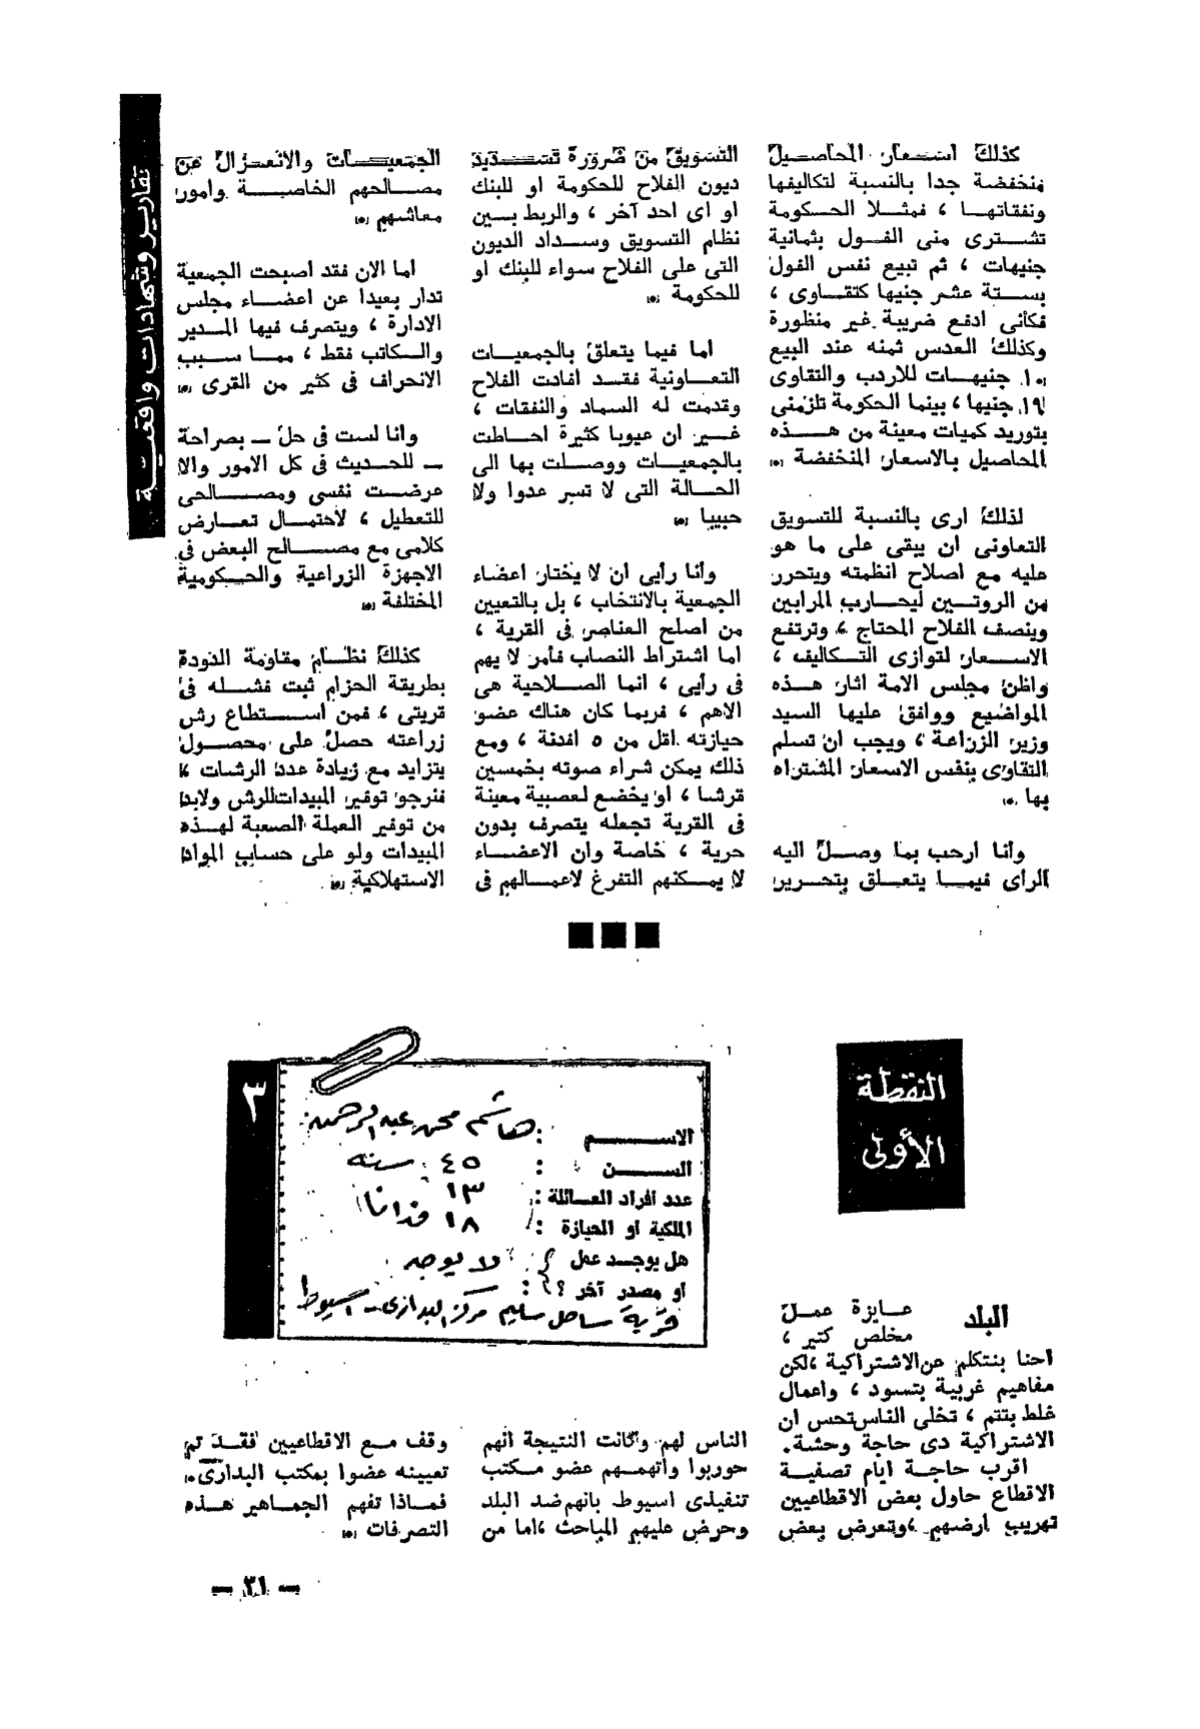 تقارير وشهادات واقعية
كذلك اسعار المحاصيل
منخفضة جدا بالنسبة لتكاليفها
ونفقاتها ، فمثلا الحكومة
تشترى منى الفول بثمانية
جنيهات ، ثم تبيع نفس الفول
بستة عشر جنيها كتقاوى ،
فكأنى ادفع ضريبة غير منظورة
وكذلك العدس ثمنه عند البيع
١٠ جنيهات للاردب والتقاوى
١٩ جنيها ، بينما الحكومة تلزمنى
بتوريد كميات معينة من هذه
المحاصيل بالاسعار المنخفضة ..
لذلك ارى بالنسبة للتسويق
التعاونى ان يبقى على ما هو
عليه مع اصلاح انظمته ويتحرر
من الروتين ليحارب المرابين
وينصف الفلاح المحتاج ، وترتفع
الاسعار لتوازى التكاليف ،
واظن مجلس الامة اثار هذه
المواضيع ووافق عليها السيد
وزير الزراعة ، ويجب ان تسلم
التقاوى بنفس الاسعار المشتراه
بها ..
وأنا ارحب بما وصل اليه
الرأى فيما يتعلق بتحرير
التسويق من ضرورة تسديد
ديون الفلاح للحكومة او للبنك
او اى احد آخر ، والربط بين
نظام التسويق وسداد الديون
التى على الفلاح سواء للبنك او
للحكومة ..
اما فيما يتعلق بالجمعيات
التعاونية فقد افادت الفلاح
وقدمت له السماد والنفقات ،
غير ان عيوبا كثيرة احاطت
بالجمعيات ووصلت بها الى
الحالة التى لا تسر عدوا ولا
حبيبا ..
وأنا رأيى ان لا يختار اعضاء
الجمعية بالانتخاب ، بل بالتعيين
من اصلح العناصر فى القرية ،
اما اشتراط النصاب فأمر لا يهم
فى رأيى ، انما الصلاحية هى
الاهم ، فربما كان هناك عضو
حيازته اقل من ٥ افدنة ، ومع
ذلك يمكن شراء صوته بخمسين
قرشا ، او يخضع لعصبية معينة
فى القرية تجعله يتصرف بدون
حرية ، خاصة وان الاعضاء
لا يمكنهم التفرغ لاعمالهم فى
الجمعيات والانعزال عن
مصالحهم الخاصة وأمور
معاشهم ..
اما الان فقد اصبحت الجمعية
تدار بعيدا عن اعضاء مجلس
الادارة ، ويتصرف فيها المدير
والكاتب فقط ، مما سبب
الانحراف فى كثير من القرى ..
وانا لست فى حل ــ بصراحة
ــ للحديث فى كل الامور والا
عرضت نفسى ومصالحى
للتعطيل ، لاحتمال تعارض
كلامى مع مصالح البعض فى
الاجهزة الزراعية والحكومية
المختلفة ..
كذلك نظام مقاومة الدودة
بطريقة الحزام ثبت فشله فى
قريتى ، فمن استطاع رش
زراعته حصل على محصول
يتزايد مع زيادة عدد الرشات ،
فنرجو توفير المبيدات للرش ولابد
من توفير العملة الصعبة لهذه
المبيدات ولو على حساب المواد
الاستهلاكية ..
النقطة
الأولى
٣
الاسم : هاشم محمد عبد الرحمن
السن : ٤٥ سنه
عدد أفراد العائلة : ١٣
الملكية او الحيازة : ١٨ فدانا
هل يوجد عمل ؟ لا يوجد
أو مصدر آخر ؟ :
قرية ساحل سليم مركز البدارى - اسيوط
البلد عايزة عمل
مخلص كتير ،
احنا بنتكلم عن الاشتراكية ، لكن
مفاهيم غريبة بتسود ، واعمال
غلط بتتم ، تخلى الناس تحس ان
الاشتراكية دى حاجة وحشة .
اقرب حاجة ايام تصفية
الاقطاع حاول بعض الاقطاعيين
تهريب ارضهم ، وتعرض بعض
الناس لهم وكانت النتيجة انهم
حوربوا واتهمهم عضو مكتب
تنفيذى اسيوط بانهم ضد البلد
وحرض عليهم المباحث ، اما من
وقف مع الاقطاعيين فقد تم
تعيينه عضوا بمكتب البدارى ..
فماذا تفهم الجماهير هذه
التصرفات ..
ــ ٣١ ــ